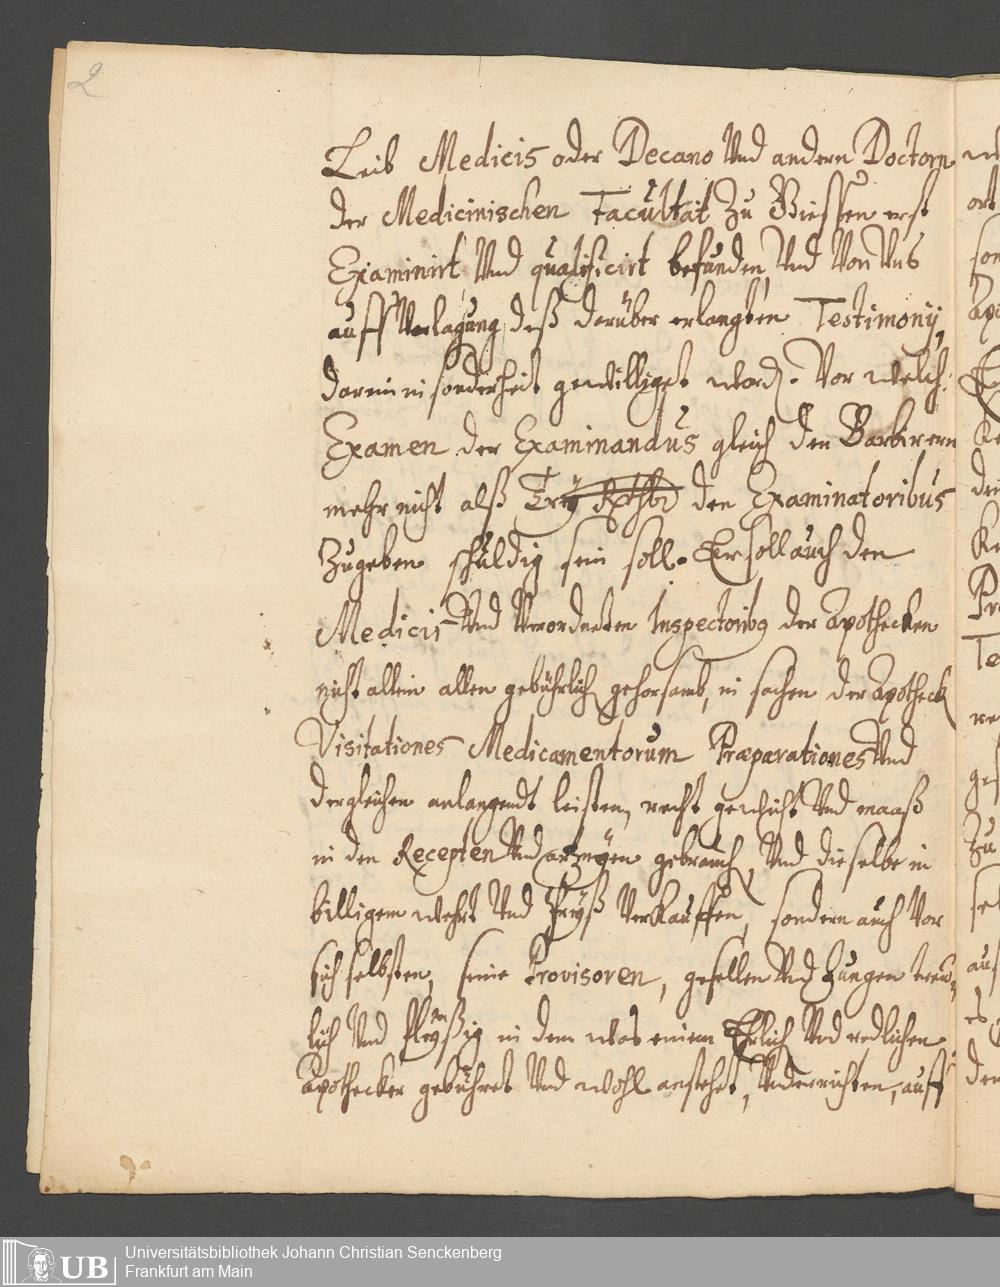 2
Leib Medicis oder Decano Und andern Doctorn
der Medicinischen Facultät zu Giessen erst
Examinirt, Und qualificirt befunden, Und Von Uns
auff Vorlagung deß darüber erlangten Testimonij,
darin in sonderheit gewilliget word. Vor welch
Examen der Examinandus gleich den Barbirern
mehr nicht alß Trey Rthlr den Examinatoribus
Zugeben schuldig sein soll. Er soll auch den
Medicis Und Verordneten Inspectoribus der Apothecken
nicht allein allen gebührlich gehorsamb, in sachen der Apotheck
Visitationes Medicamentorum Præparationes Und
dergleichen anlangendt leisten, recht gewicht Und maaß
in den Recepten Und artzneyen gebrauch, Und dieselbe in
billigem wehrt Und Preyß Verkauffen, sondern auch Vor
sich selbsten, seine Provisoren, gesellen Und Jungen treu-
lich Und fleyßig in dem was einem Ehrlich Und redlichen
Apothecker gebühret Und wohl anstehet, Underrichten, auff
UB
Universitätsbibliothek Johann Christian Senckenberg
Frankfurt am Main